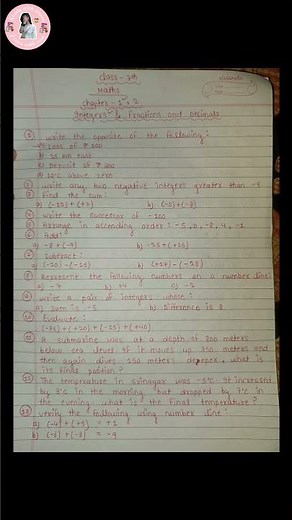 class - 7th
Maths
chapter - 1 & 2
Integers & Fractions and decimals
1 write the opposite of the following :
a) Loss of ₹ 200
b) 25 km east
c) Deposit of ₹ 500
d) 12°C above zero
2 write any two negative integers greater than -4
3 Find the sum :
b) (-5)+(-8)
4 write the successor of -100
5 Arrange in ascending order : -5, 0, -8, 4, -1
6 Add :
a) -8 + (-9)
7 Subtract :
a) (-20) - (-15)
8 Represent the following numbers on a number line
a) -7 b) +4 c) -2
9 write a pair of integers whose :
a) Sum is -5 b) Difference is 8
10 Evaluate :
+ (+20) + (-15) + (+40)
11 A submarine was at a depth of 800 meters
below sea level if it moves up 350 meters and
then again dives 150 meters deeper, what is
its final position ?
12 The temperature in srinagar was -5°C. It increased
by 8°C in the morning but dropped by 7°C in
the evening what is the final temperature ?
13 verify the following using number line :
a) (-4) + (+5) = +1
b) (-6) + (-3) = -9